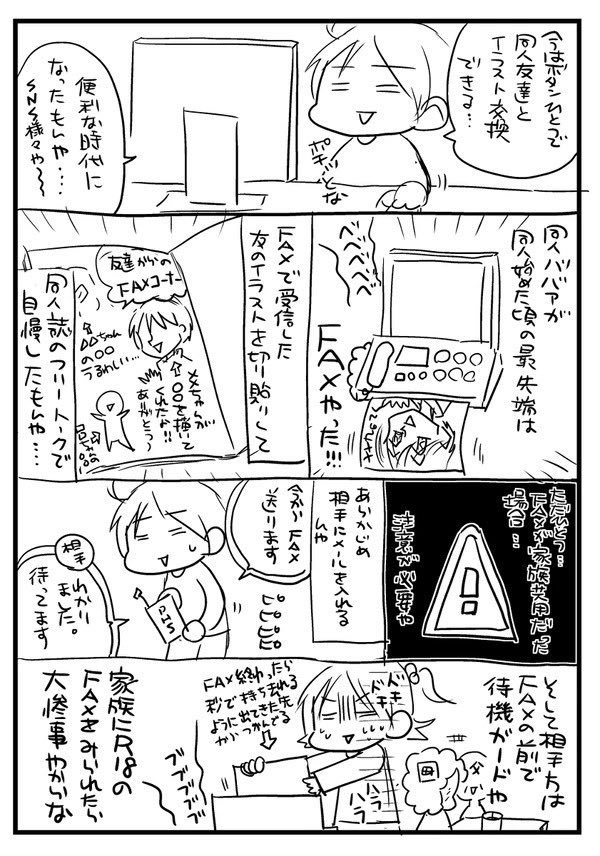 今はボタンひとつで
同人友達と
イラスト交換
できる…
ポチッとな
便利な時代に
なったもんや…
SNS様々や〜
同人ババアが
同人始めた頃の最先端は
FAXやった!!!
べべべべべ
FAXで受信した
友のイラストを切り貼りして
友達からの
FAXコーナー
△△ちゃん
の〇〇
うるわしい…
××ちゃんが
〇〇を描いて
くれたか!!
ありがとう〜
同人誌のフリートークで
自慢したもんや…
ただどう…
FAXが家族共用だった
場合…
注意が必要や
あらかじめ
相手にメールを入れる
んや
今からFAX
送ります
ピピピピ
PHS
相手
わかり
ました。
待ってます
そして相手方は
FAXの前で
待機がードや
ドキ
ドキ
ハラ
ハラ
母
父
FAX終わったら
秒で持ち去れる
ように出てきた先
からつかんでる
ブブブブブブ
家族にR18の
FAXをみられたら
大惨事やからな